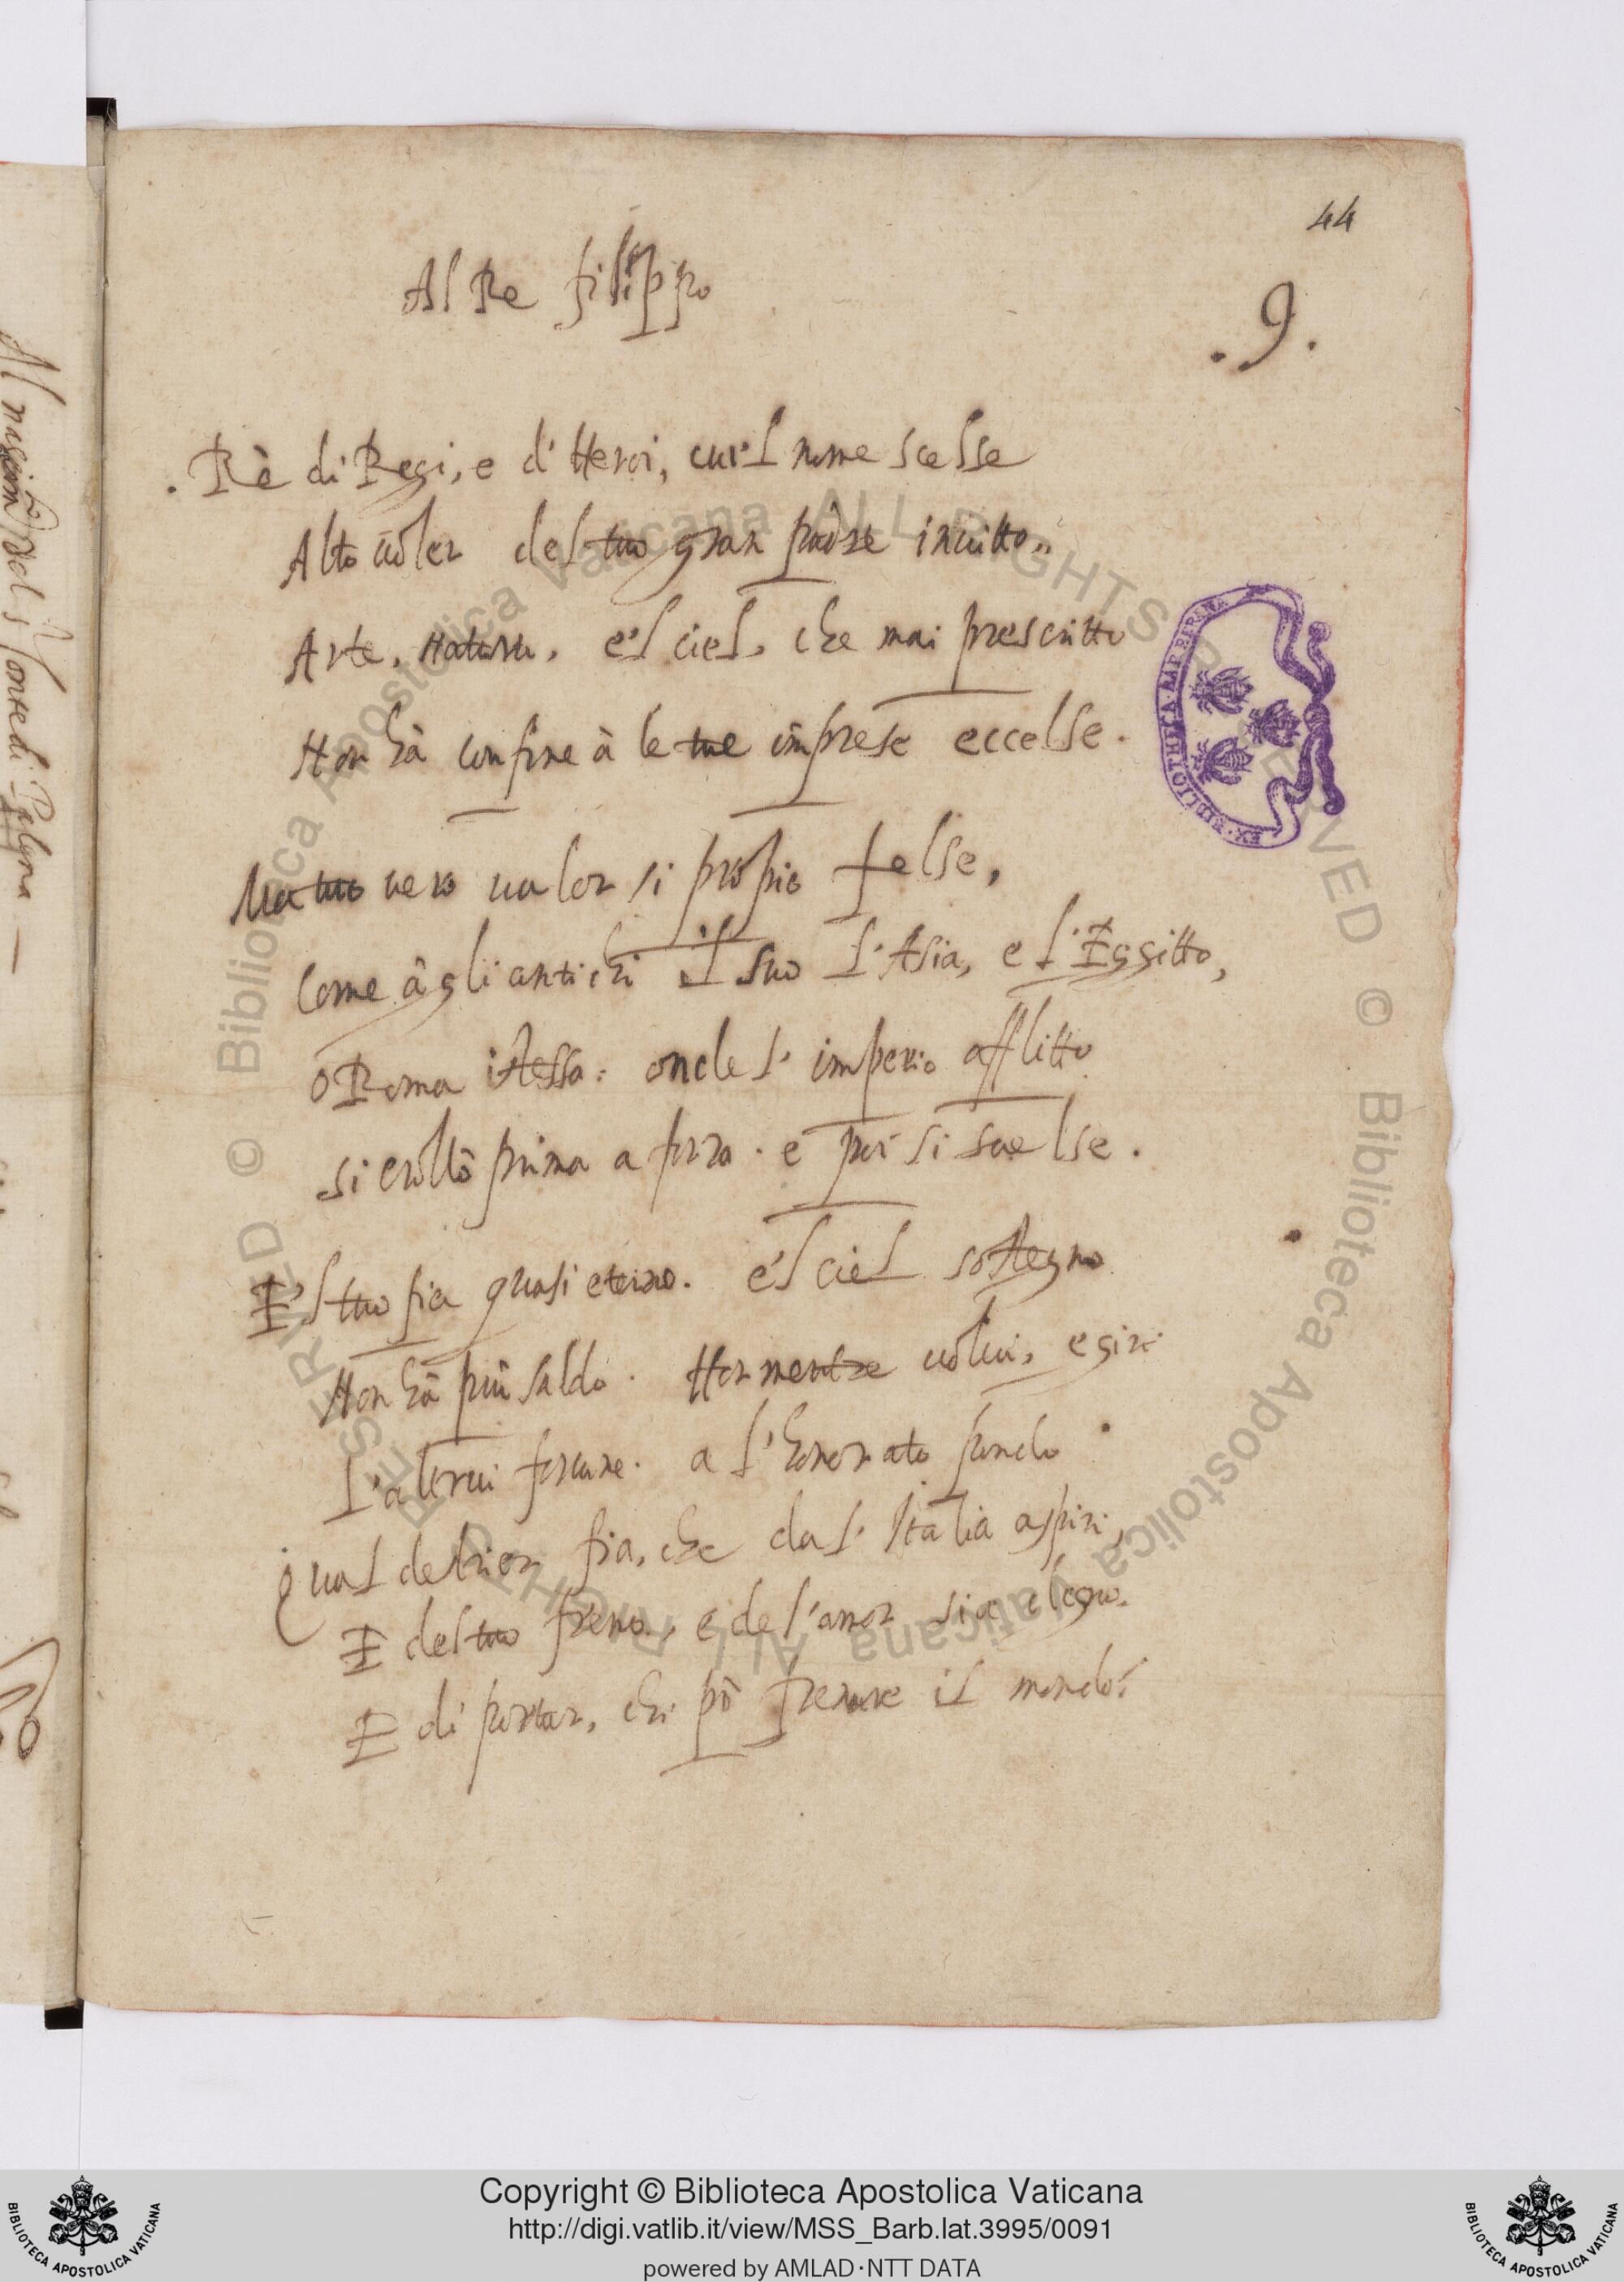 44
Al Re filippo
.9.
. Rè di Regi, e d' Heroi, cui'l nome scelse
Alto voler del tuo gran padre invitto..
Arte, Natura, e'l ciel, che mai prescritto
Non hà confine à le tue imprese eccelse.
Ma tuo vero valor sì propio felse,
Come à gli antichi il suo l'Asia, e l'Eggitto,
O Roma istessa: onde l'imperio afflitto
si crollò prima a forza. e poi si svelse.
E'l tuo fia quasi eterno. e'l ciel sostegno
Non hà più saldo. Hor mentre volvi, e giri
L'altrui fortune. a l'honorato pondo
Qual destrier fia, che da l'Italia aspiri,
E del tuo freno, e de l'amor sia degno.
E di portar, chi pò frenare il mondo?
Al nascimento del s. Conte di Palena
EX·BIBLIOTHECA·BARBERINA
© Biblioteca Apostolica Vaticana ALL RIGHTS RESERVED © Biblioteca Apostolica Vaticana ALL RIGHTS RESERVED
Copyright © Biblioteca Apostolica Vaticana
http://digi.vatlib.it/view/MSS_Barb.lat.3995/0091
powered by AMLAD·NTT DATA
BIBLIOTECA APOSTOLICA VATICANA
BIBLIOTECA APOSTOLICA VATICANA